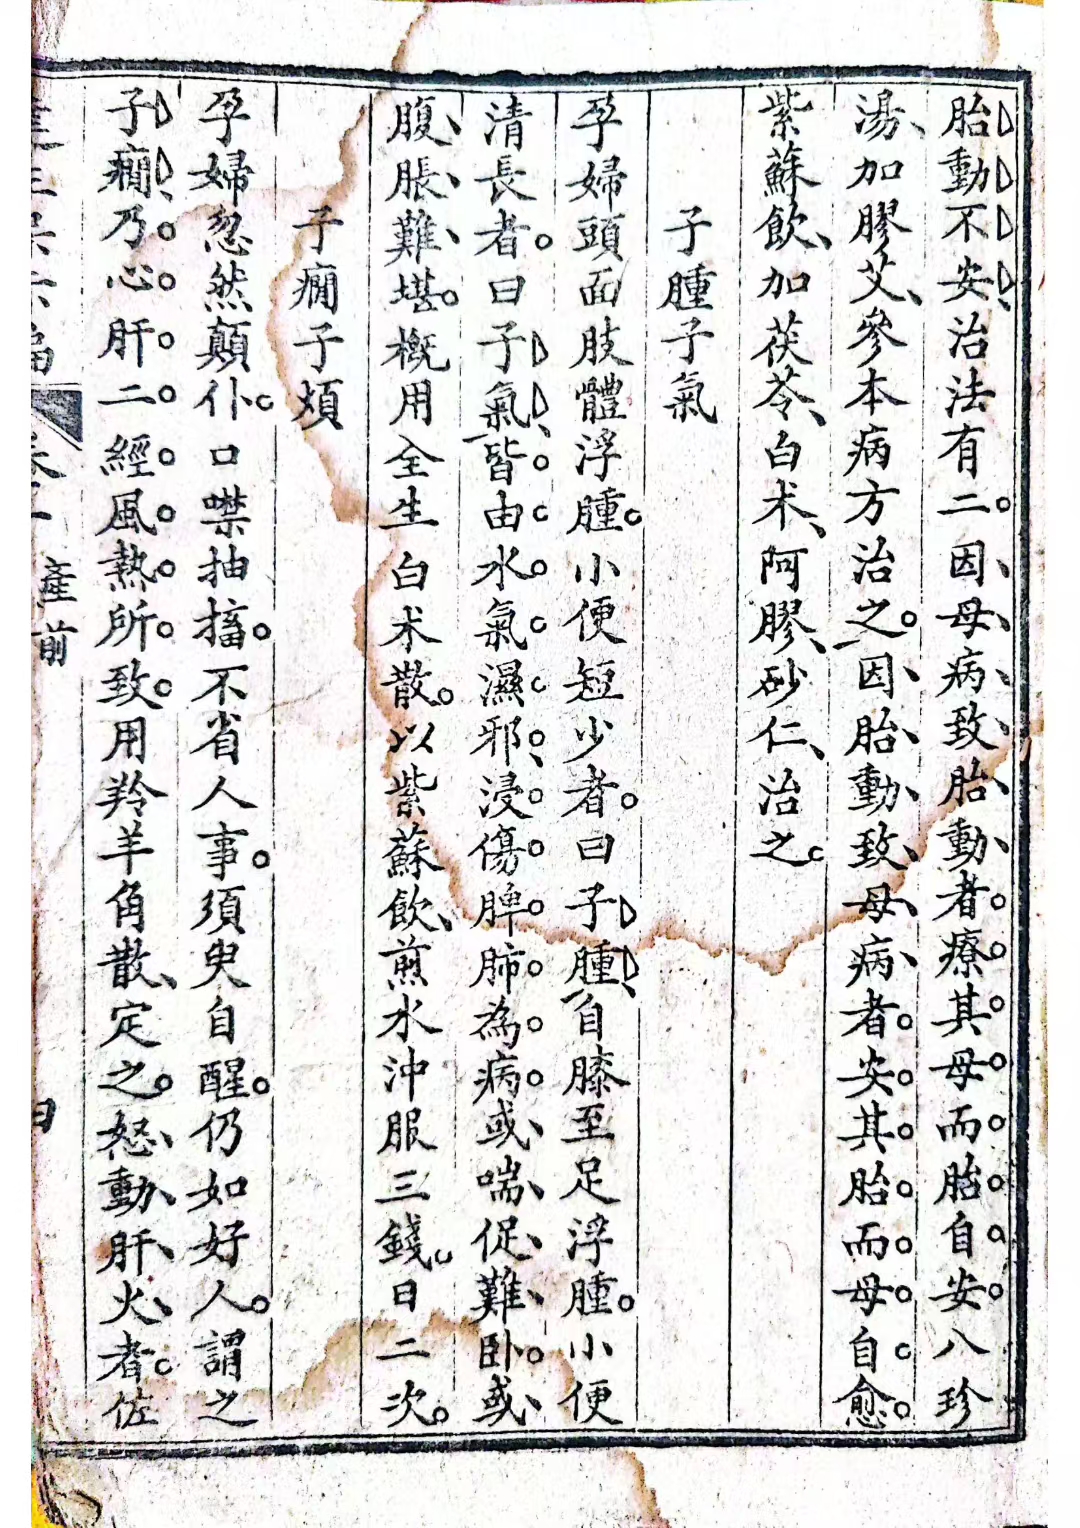 胎動不安治法有二。因母病致胎動者療其母而胎自安八珍
湯加膠艾參本病方治之。因胎動致母病者安其胎而母自愈
紫蘇飲加茯苓白朮阿膠砂仁治之。
子腫子氣
孕婦頭面肢體浮腫。小便短少者。曰子腫自膝至足浮腫。小便
清長者。曰子氣皆由水氣濕邪浸傷脾肺為病或喘促難卧或
腹脹難堪。概用全生白朮散。以紫蘇飲煎水沖服三錢。日二次。
子癇子煩
孕婦忽然顛仆。口噤抽搐。不省人事。須臾自醒。仍如好人。謂之
子癇乃心肝二經風熱所致用羚羊角散定之。怒動肝火者。佐
產前